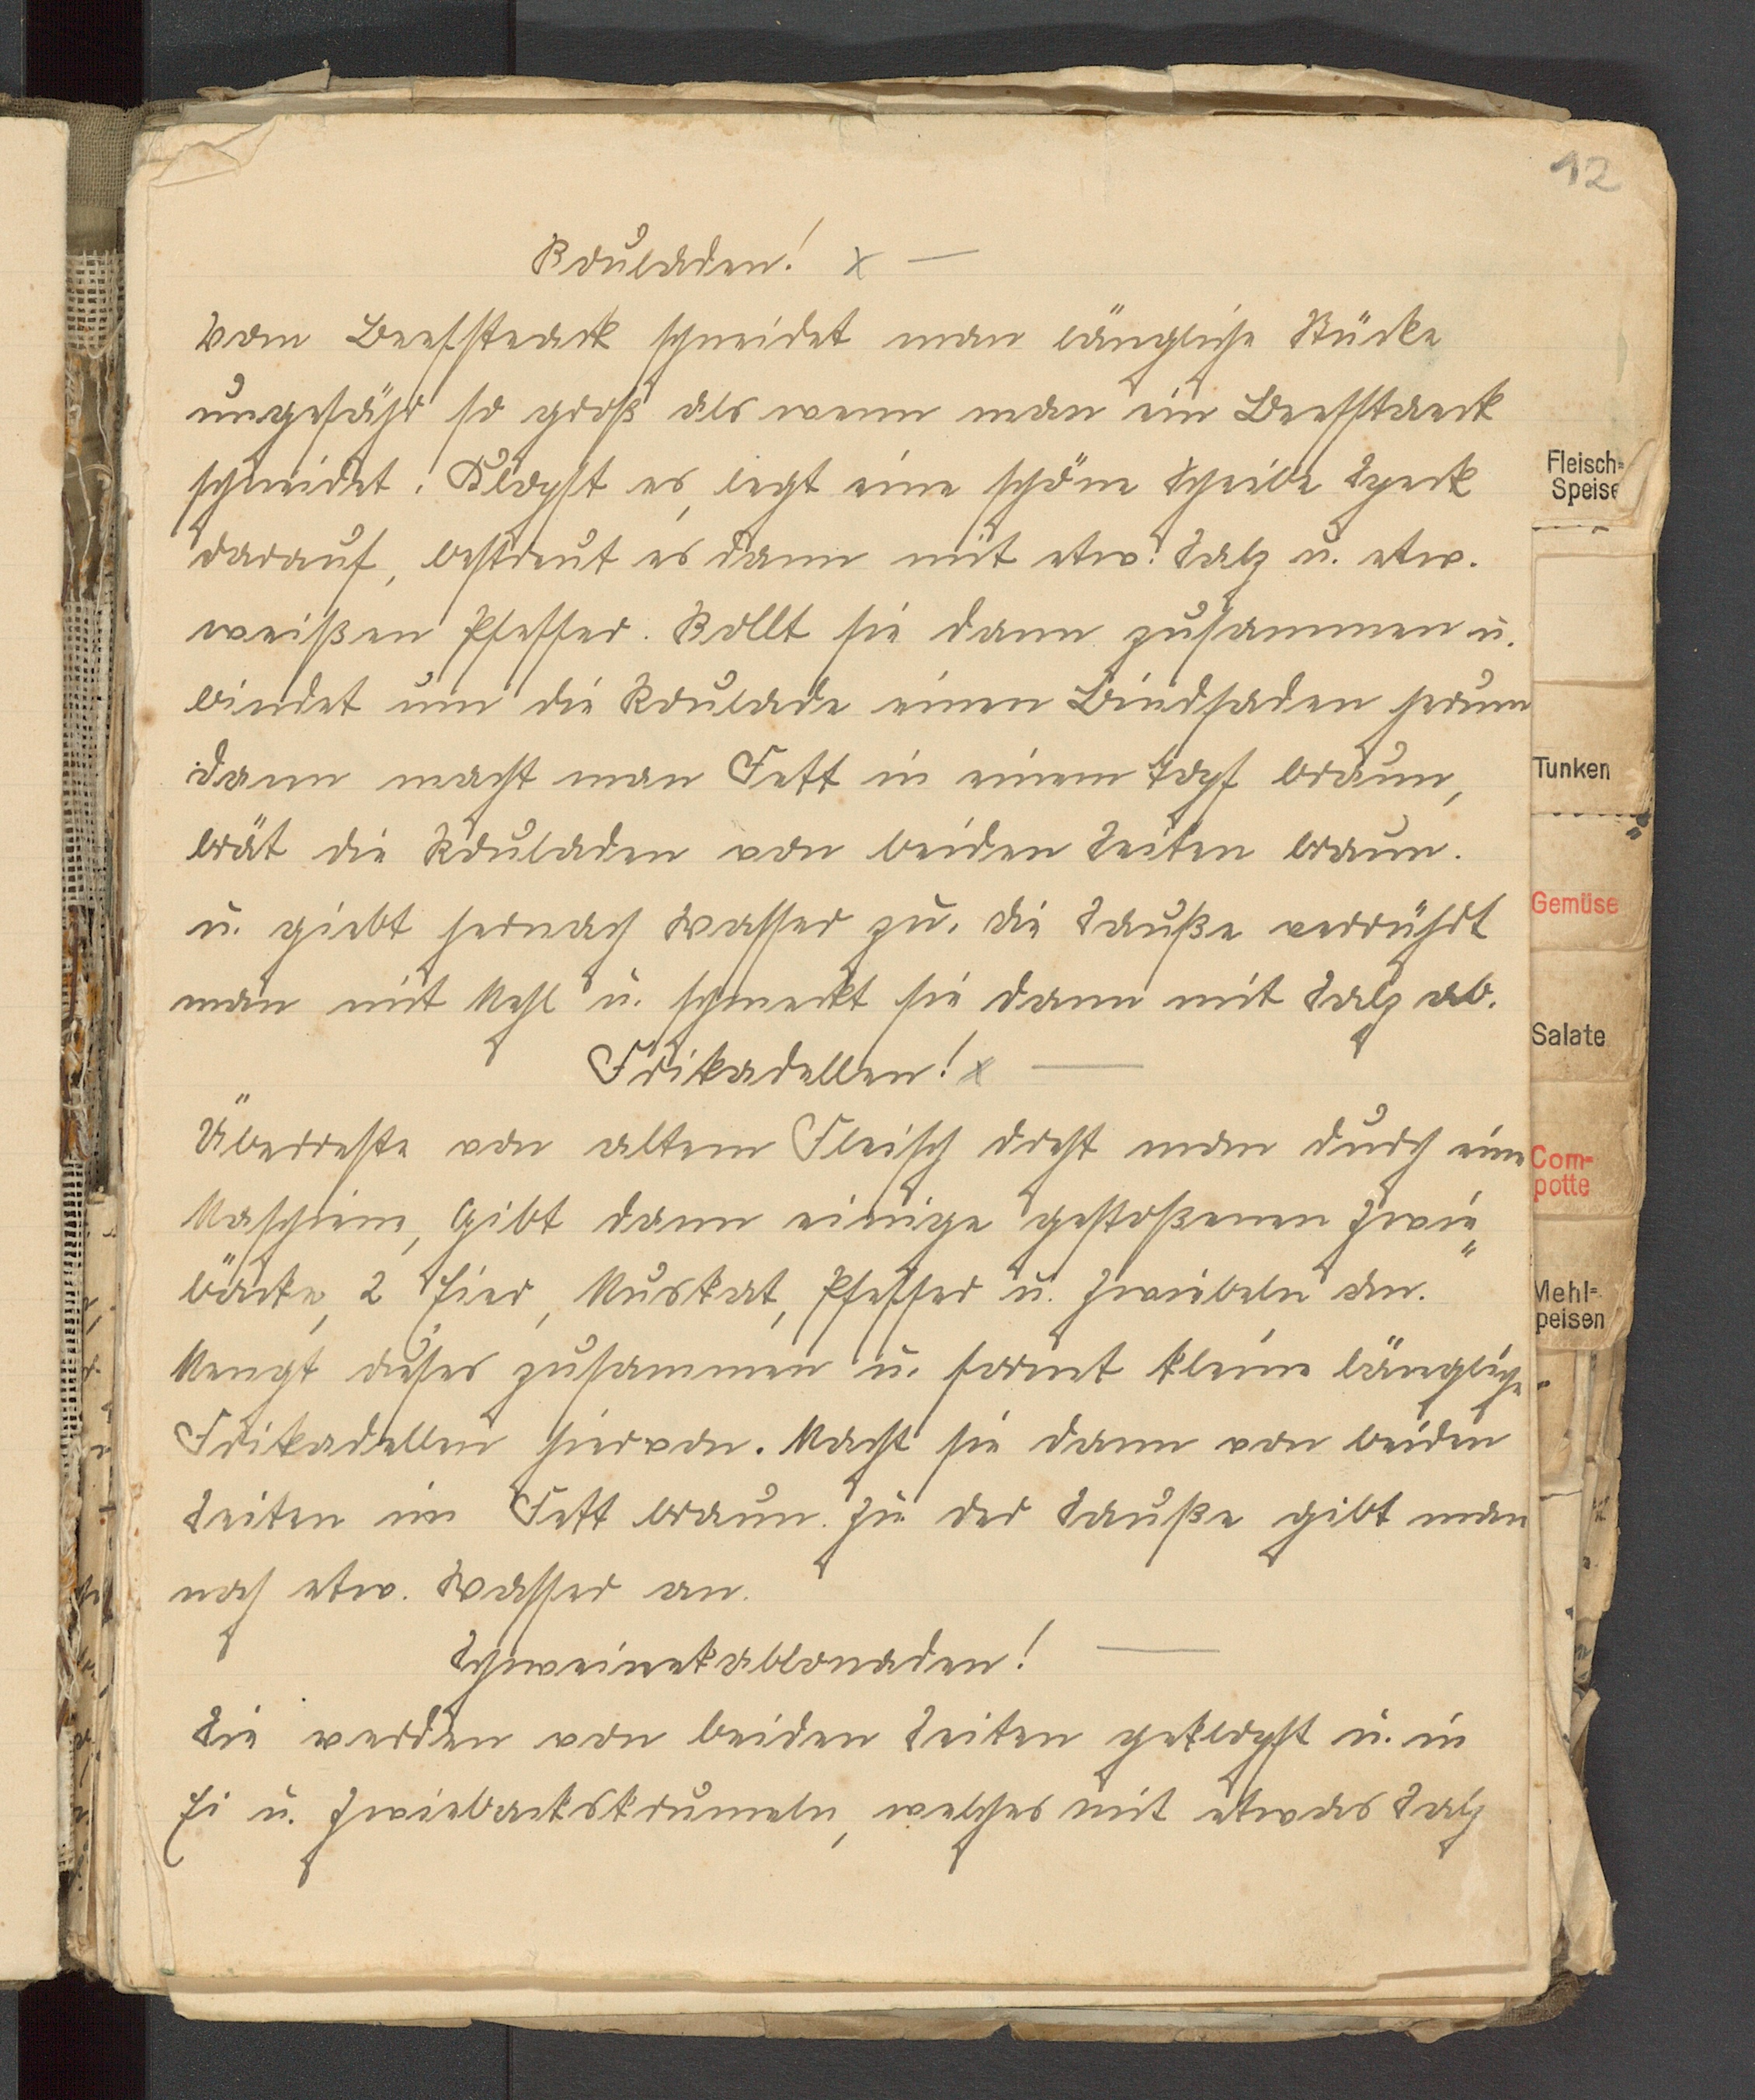 12
Rouladen! x —
Vom Beefsteack schneidet man längliche Stücke
ungefähr so groß als wenn man ein Beefstaeck
schneidet. Klopft es, legt eine schöne Scheibe Speck
darauf, bestreut es dann mit etw. Salz u. etw.
weißen Pfeffer. Rollt sie dann zusammen u.
bindet um die Roulade einen Bindfaden herum
dann macht man Fett in einem Topf braun,
brät die Rouladen von beiden Seiten braun.
u. giebt hernach Wasser zu. Die Sauße verrührt
man mit Mehl u. schmeckt sie dann mit Salz ab.
Frikadellen! x —
Überreste von altem Fleisch dreht man durch eine
Maschiene, Gibt dann einige gestoßenen Zwie„
bäcke, 2 Eier, Muskat, Pfeffer u. Zwiebeln an.
Mengt dieses zusammen u. formt kleine längliche
Frikadellen hiervon. Macht sie dann von beiden
Seiten im Fett braun. Zu der Sauße gibt man
noch etw. Wasser an.
Schweinekablonaden! —
Sie werden von beiden Seiten geklopft u. in
Ei u. Zwiebackskrumeln, welches mit etwas Salz
Fleisch=
Speise
Tunken
Gemüse
Salate
Com=
potte
Mehl=
peisen